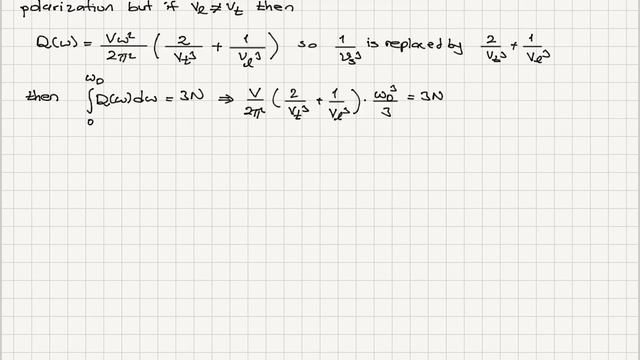 polarization but if v_l ≠ v_t then
D(ω) = Vω²/2π² ( 2/v_t³ + 1/v_l³ ) so 1/v_s³ is replaced by 2/v_t³ + 1/v_l³
then ∫₀^ω_D D(ω)dω = 3N ⇒ V/2π² ( 2/v_t³ + 1/v_l³ ) · ω_D³/3 = 3N